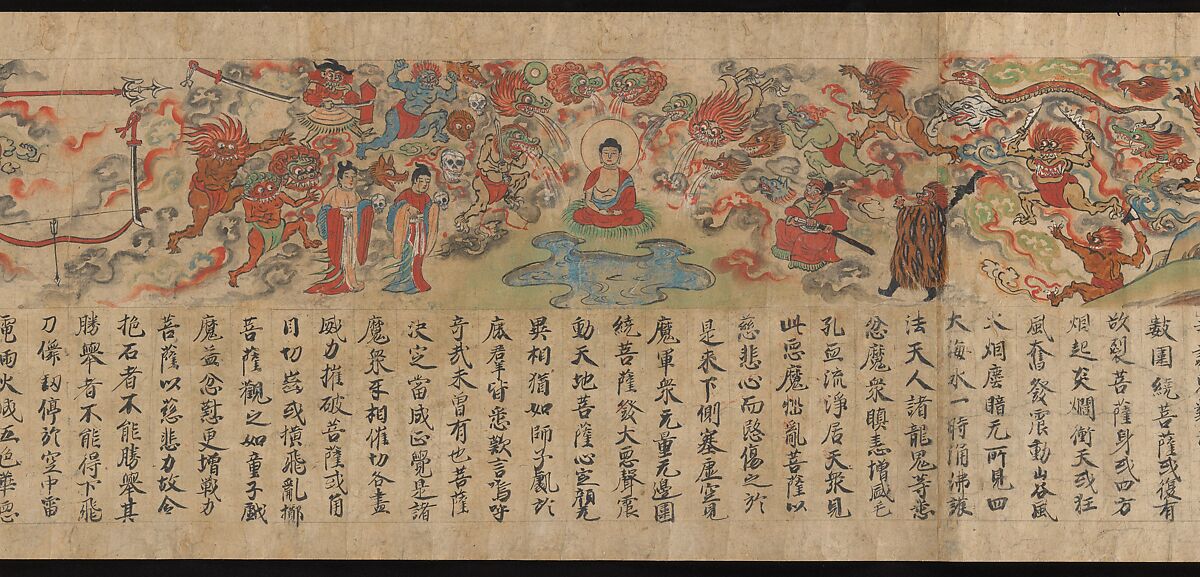 數圍繞菩薩或復有
欲裂菩薩身或四方
烟起炎爓衝天或狂
風奮發震動山谷風
火烟塵暗无所見四
大海水一時涌沸護
法天人諸龍鬼等悉
忿魔衆瞋恚增盛毛
孔血流淨居天衆見
此惡魔惱亂菩薩以
慈悲心而愍傷之於
是来下側塞虛空見
魔軍衆无量无邊圍
繞菩薩發大惡聲震
動天地菩薩心定顏无
異相猶如師子處於
鹿羣皆悉歎言嗚呼
奇哉未曾有也菩薩
決定當成正覺是諸
魔衆互相催切各盡
威力摧破菩薩或角
目切齒或橫飛亂擲
菩薩觀之如童子戲
魔益忿懟更增戰力
菩薩以慈悲力故令
抱石者不能勝舉其
勝舉者不能得下飛
刀儛劒停於空中雷
電雨火成五色華惡